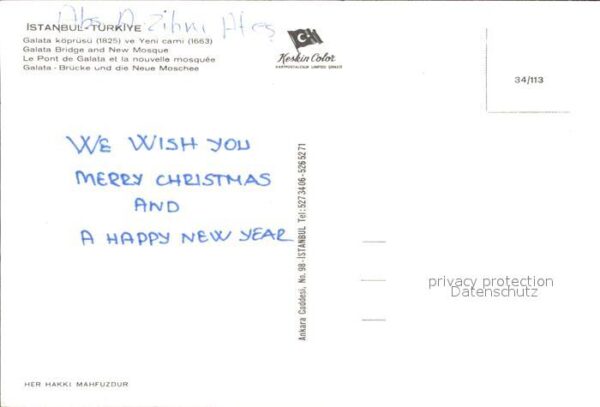 Abs A. Zihni Ateş
İSTANBUL-TÜRKİYE
Galata köprüsü (1825) ve Yeni cami (1663)
Galata Bridge and New Mosque
Le Pont de Galata et la nouvelle mosquée
Galata - Brücke und die Neue Moschee
Keskin Color
KARTPOSTALCILIK LIMITED ŞİRKETİ
34/113
WE WISH YOU
MERRY CHRISTMAS
AND
A HAPPY NEW YEAR
Ankara Caddesi, No. 98-İSTANBUL Tel: 5273406-5265271
privacy protection
Datenschutz
HER HAKKI MAHFUZDUR